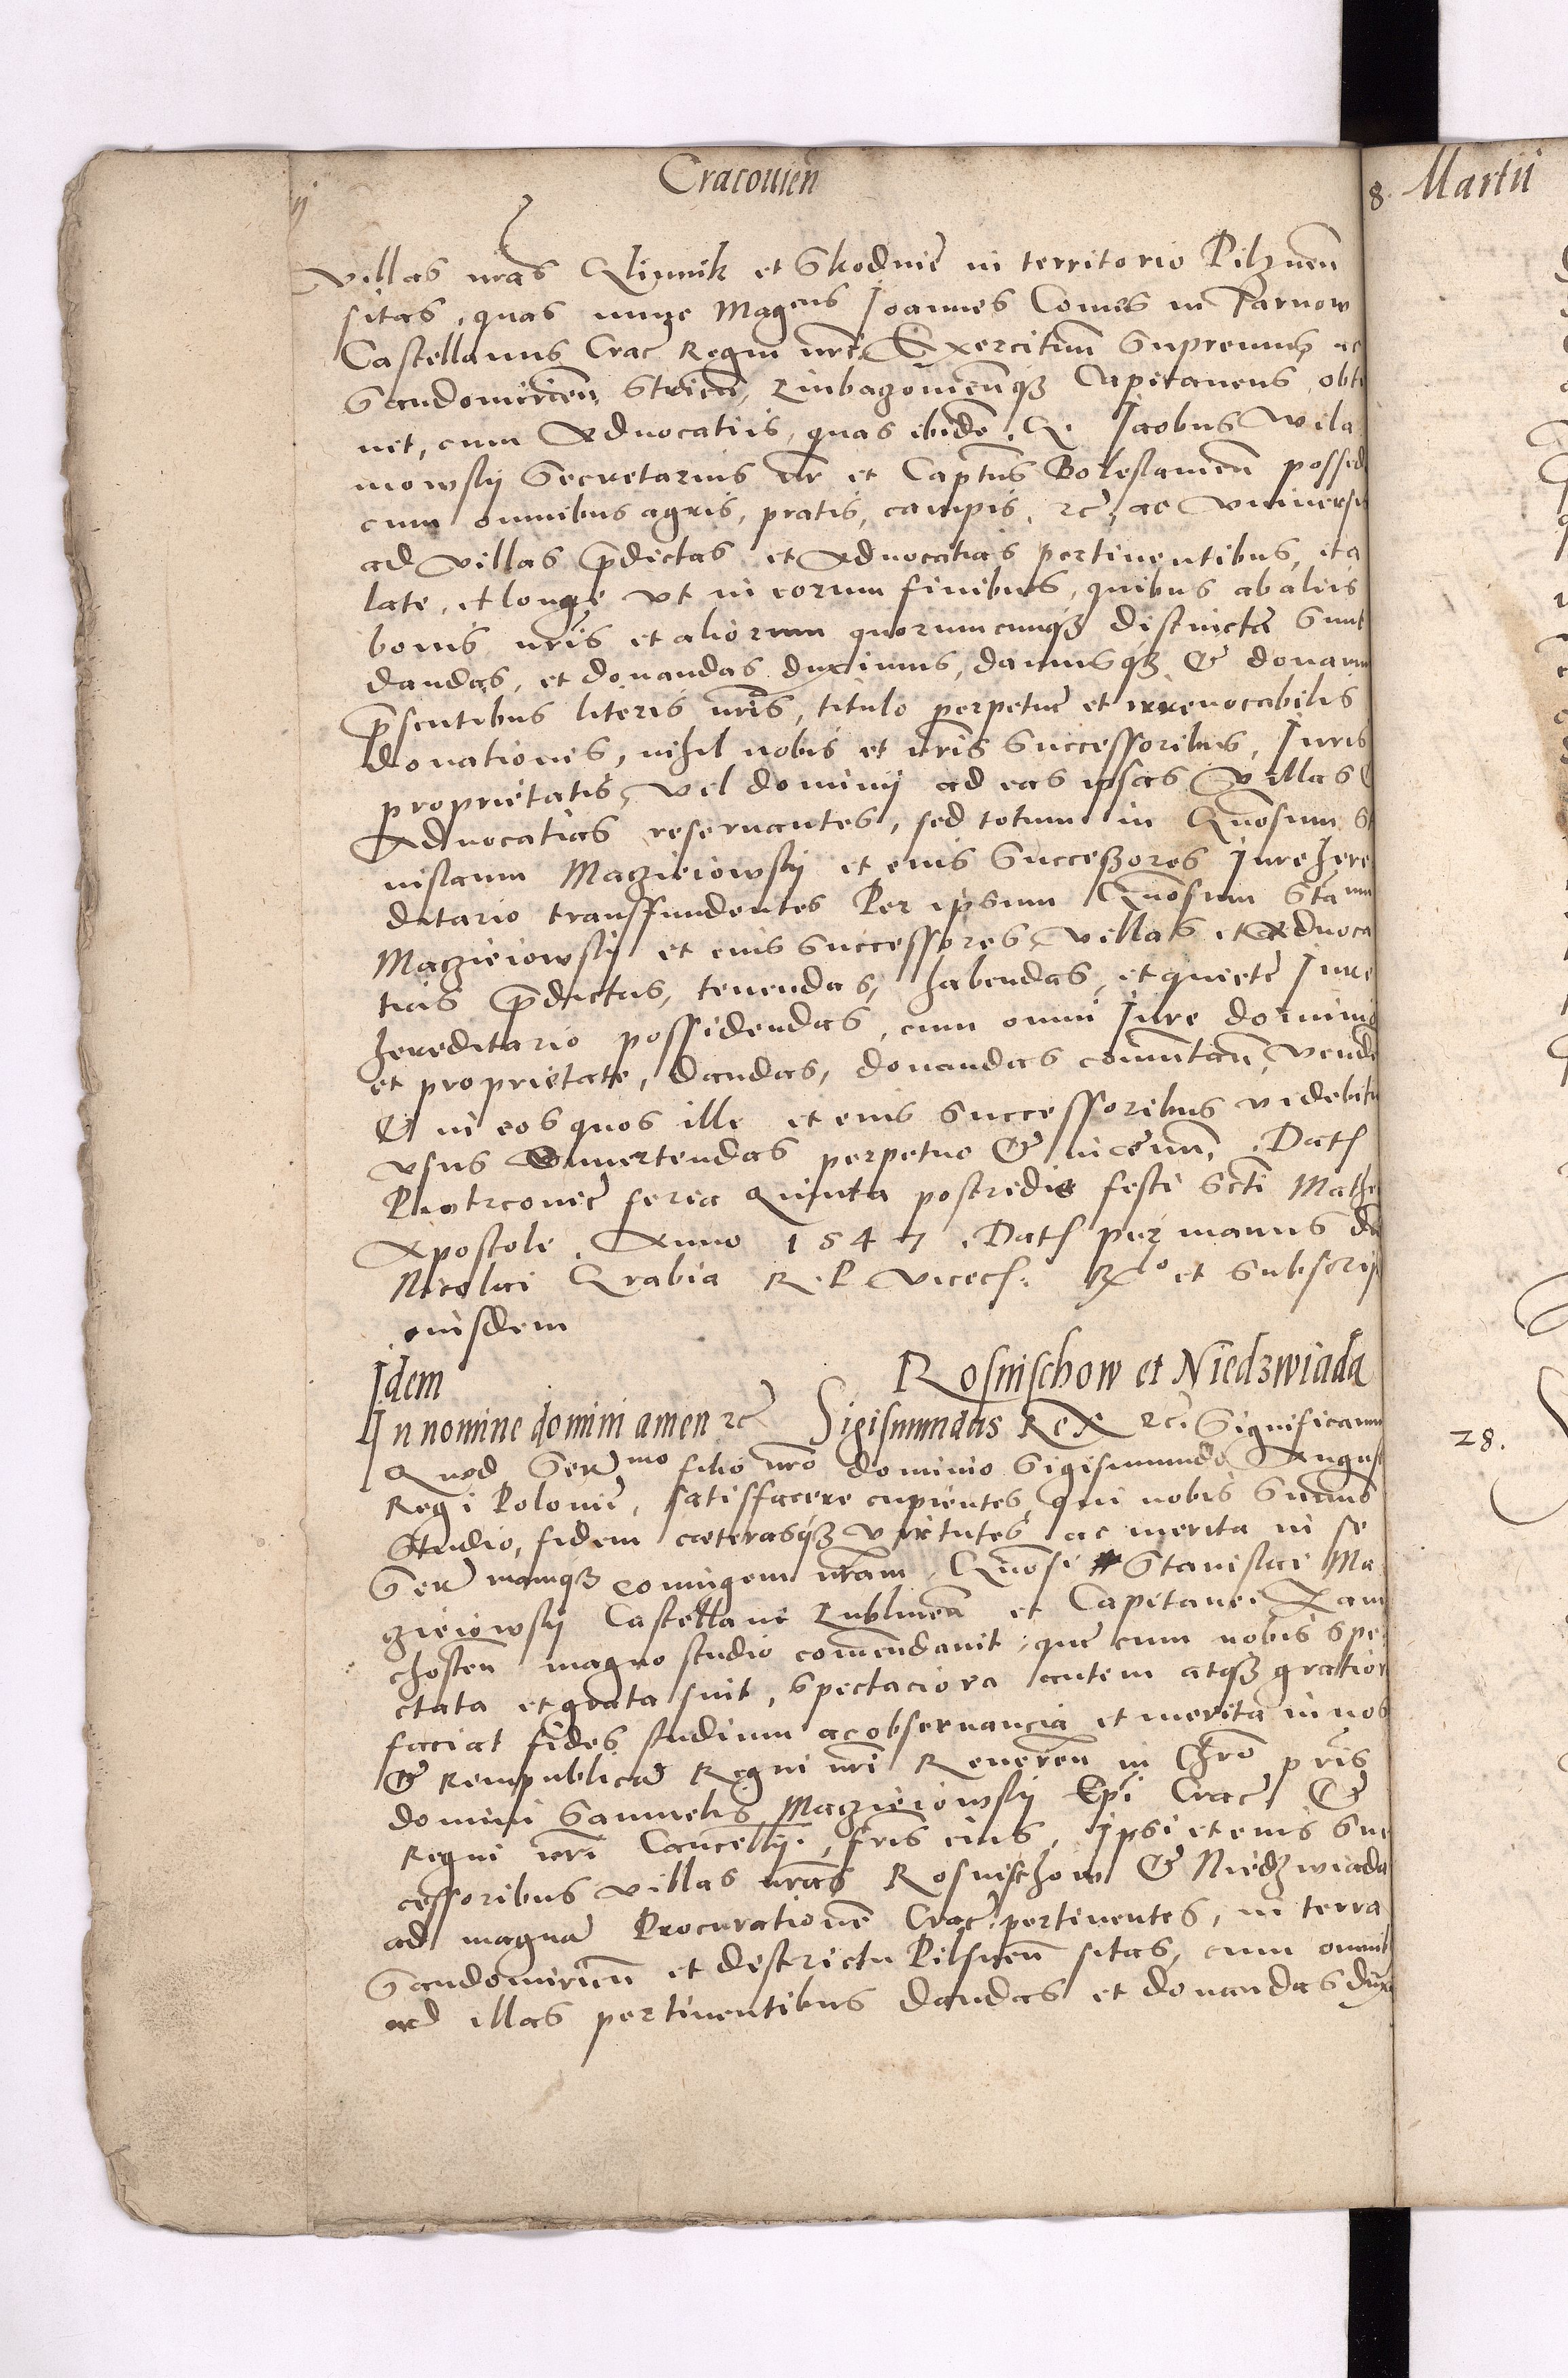 Cracouien
8. Martii
villas nras Glinnik et Gkodnie in territorio Pilznen
sitas, quas nunc Magcus Joannes Comes in Tarnow
Castellanus Crac Regni nri Exercituum Supremus ac
Sandomirien, Strien, Liubaczouienqz Capitaneus obti
net, cum Aduocatiis, quas ibide. G. Jacobus Wila
mowsky Secretarius nr et Captus Boleslauien possid
cum omnibus agris, pratis, campis, rc, ac vniuersis
ad villas pdictas et Aduocatias pertinentibus, ita
late, et longe vt in eorum finibus, quibus ab aliis
bonis nris et aliorum quorumcunqz distincta sunt
dandas, et donandas duximus, damusqz & donamus
psentibus literis nris, titulo perpetue et irreuocabilis
donationis, nihil nobis et nris Successoribus, Juris
proprietatis, vel dominij ad eas ipsas Villas &
Aduocatias reseruantes, sed totum in Gnosum St
nislaum Maczieiowsky et eius Successores Jure here
ditario transfundentes Per ipsum Gnosum Staum
Maczieiowsky et eius Successores, villas et Aduoca
tias pdictas, tenendas, habendas, et quiete Jure
hereditario possidendas, cum omni Jure dominio
et proprietate, dandas, donandas comutan, vendi
& in eos quos ille et eius Successoribus videbitur
vsus conuertendas perpetuo & in ceuum. Dats
Piotrcouie feria quinta postridie festi Scti Mathei
Apostole. Anno 1547. Dats per manus dni
Nicolai Grabia R. P. Vicecs: Rto et Subscrip
eiusdem
Idem Rosnischow et Niedzwiada
In nomine domini amen rc Sigismundus Rex rc. Significamus
Quod Sermo filio nro domino Sigismundo August
Regi Polonie, satisfacere cupientes, qui nobis summo
Studio, fidem caeterasqz virtutes ac merita in se
Sermamqz coniugem nram, Gnosi Stanislai Ma
czieiowsky Castellani Lublinen et Capitanei Zawi
chosten magno studio comendauit, que cum nobis spe
ctata et grata sint, spectaciora autem atqz gratiora
faciat fides studium ac obseruancia et merita in nos
& Rempublica Regni nri Reueren in Chro pris
domini Samuelis Maczieiowsky Epi Crac &
Regni nri Cancellij, fris eius, ipsi et eius Suc
cessoribus villas nras Rosnischow & Niedzwiada
ad magna Procuratione Crac pertinentes, in terra
Sandomirien et districtu Pilsnen sitas, cum omnib
ad illas pertinentibus dandas et donandas duxi
28.